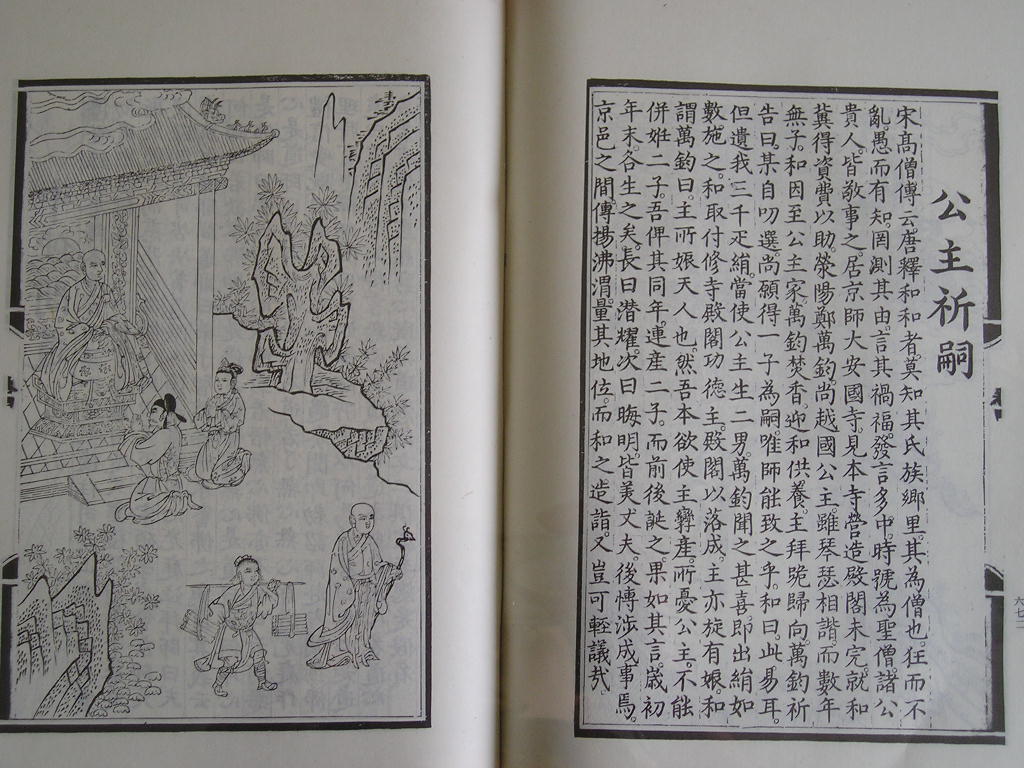 公主祈嗣
宋高僧傳云。唐釋和和者。莫知其氏族鄉里。其為僧也。狂而不
亂。愚而有知。罔測其由。言其禍福。發言多中。時號為聖僧。諸公
貴人。皆敬事之。居京師大安國寺。見本寺營造殿閣未完。就和
冀得資費以助。滎陽鄭萬鈞。尚越國公主。雖琴瑟相諧。而數年
無子。和因至公主家。萬鈞焚香。迎和供養。主拜跪歸向。萬鈞祈
告曰。某自叨選。尚願得一子為嗣。唯師能致之乎。和曰。此易耳。
但遺我三千疋絹。當使公主生二男。萬鈞聞之甚喜。即出絹如
數施之。和取付修寺殿閣功德。主殿閣以落成。主亦旋有娠。和
謂萬鈞曰。主所娠天人也。然吾本欲使主孿產。所憂公主。不能
併妊二子。吾俾其同年。連產二子。而前後誕之。果如其言。歲初
年末。各生之矣。長曰潛耀。次曰晦明。皆美丈夫。後博涉成事焉。
京邑之間。傳揚沸渭。量其地位。而和之造詣。又豈可輕議哉